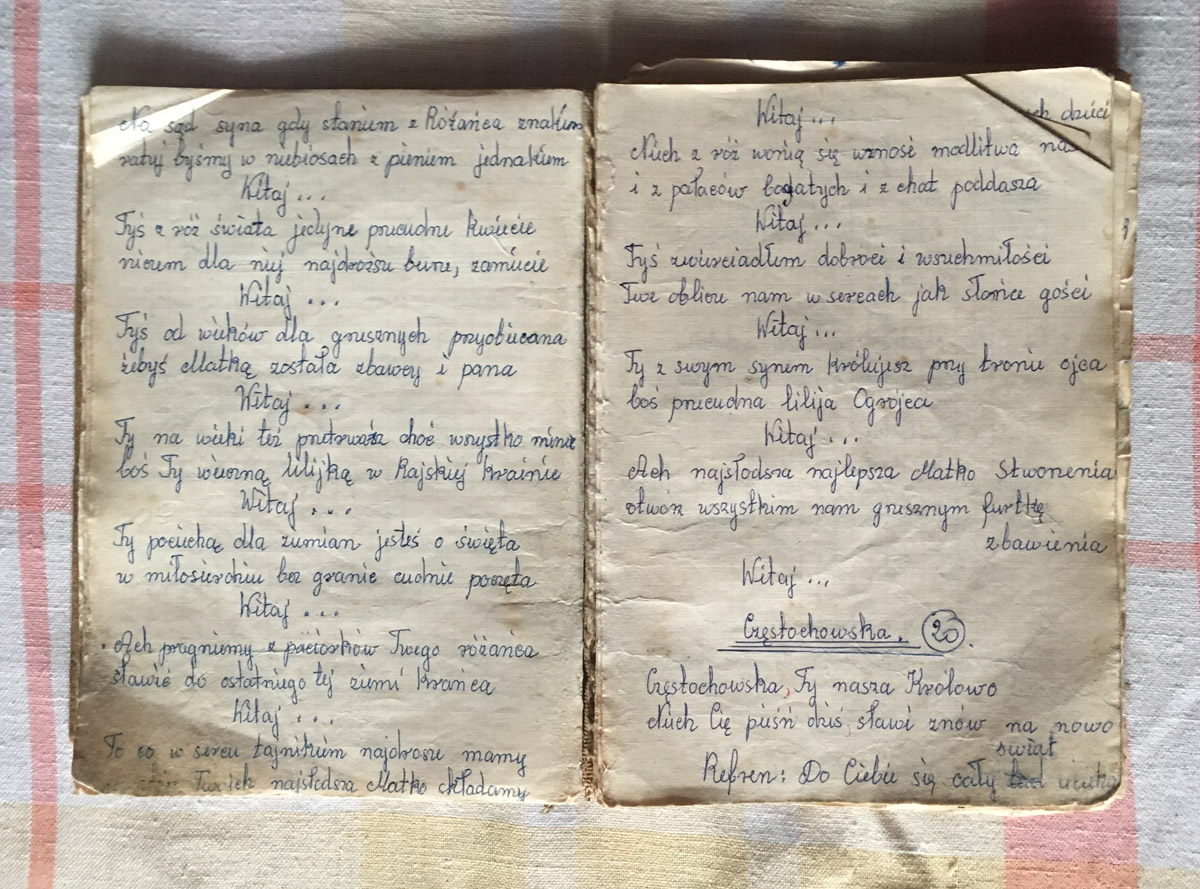 Na sąd syna gdy staniem z Różańca znakiem
ratuj byśmy w niebiosach z pieniem jednakiem
Witaj...
Tyś z róż świata jedyne przecudne kwiecie
niczem dla niej najdroższe bure, zamiecie
Witaj...
Tyś od wieków dla grzesznych przyobiecana
żebyś Matką została zbawcy i pana
Witaj...
Ty na wieki też przetrwasz choć wszystko minie
boś Ty wieczną lilijką w Rajskiej krainie
Witaj...
Ty pociechą dla ziemian jesteś o święta
w miłosierdziu bez granic cudnie poczęta
Witaj...
Ach pragniemy z paciorków Twego różańca
sławić do ostatniego tej ziemi krańca
Witaj...
To co w sercu tajnikiem najdroższe mamy
Twoich najsłodsza Matko składamy
Witaj...
dzieci
Niech z róż wonią się wznosi modlitwa
i z pałaców bogatych i z chat poddasza
Witaj...
Tyś zwierciadłem dobroci i wszechmiłości
Twe oblicze nam w sercach jak słońce gości
Witaj...
Ty z swym synem królujesz przy tronie ojca
boś przecudna lilija Ogrójca
Witaj...
Ach najsłodsza najlepsza Matko Stworzenia
otwórz wszystkim nam grzesznym furtkę
zbawienia
Witaj...
Częstochowska. 20.
Częstochowska, Ty nasza Królowo
Niech Cię pieśń dziś sławi znów na nowo
świat
Refren: Do Ciebie się cały lud ucieka